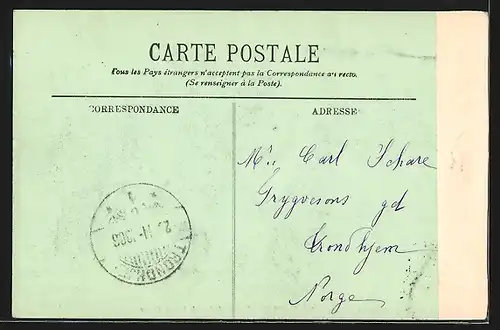 CARTE POSTALE
Tous les Pays étrangers n'acceptent pas la Correspondance au recto.
(Se renseigner à la Poste).
CORRESPONDANCE
ADRESSE
Mr. Carl Schare
Trygvesons gd
Trondhjem
Norge